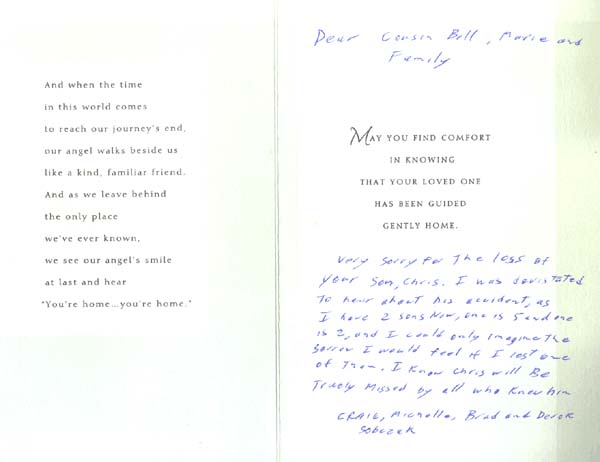 And when the time
in this world comes
to reach our journey's end,
our angel walks beside us
like a kind, familiar friend.
And as we leave behind
the only place
we've ever known,
we see our angel's smile
at last and hear
"You're home...you're home."
Dear Cousin Bill, Marie and
Family
MAY YOU FIND COMFORT
IN KNOWING
THAT YOUR LOVED ONE
HAS BEEN GUIDED
GENTLY HOME.
Very sorry for The loss of
your son, Chris. I was devistated
To hear about his accident, as
I have 2 sons Now, one is 5 and one
is 2, and I could only imagine The
sorrow I would feel if I lost one
of Them. I Know Chris will Be
Truely Missed by all who Knew him
CRAIG, Michelle, Brad and Derek
Sobczak